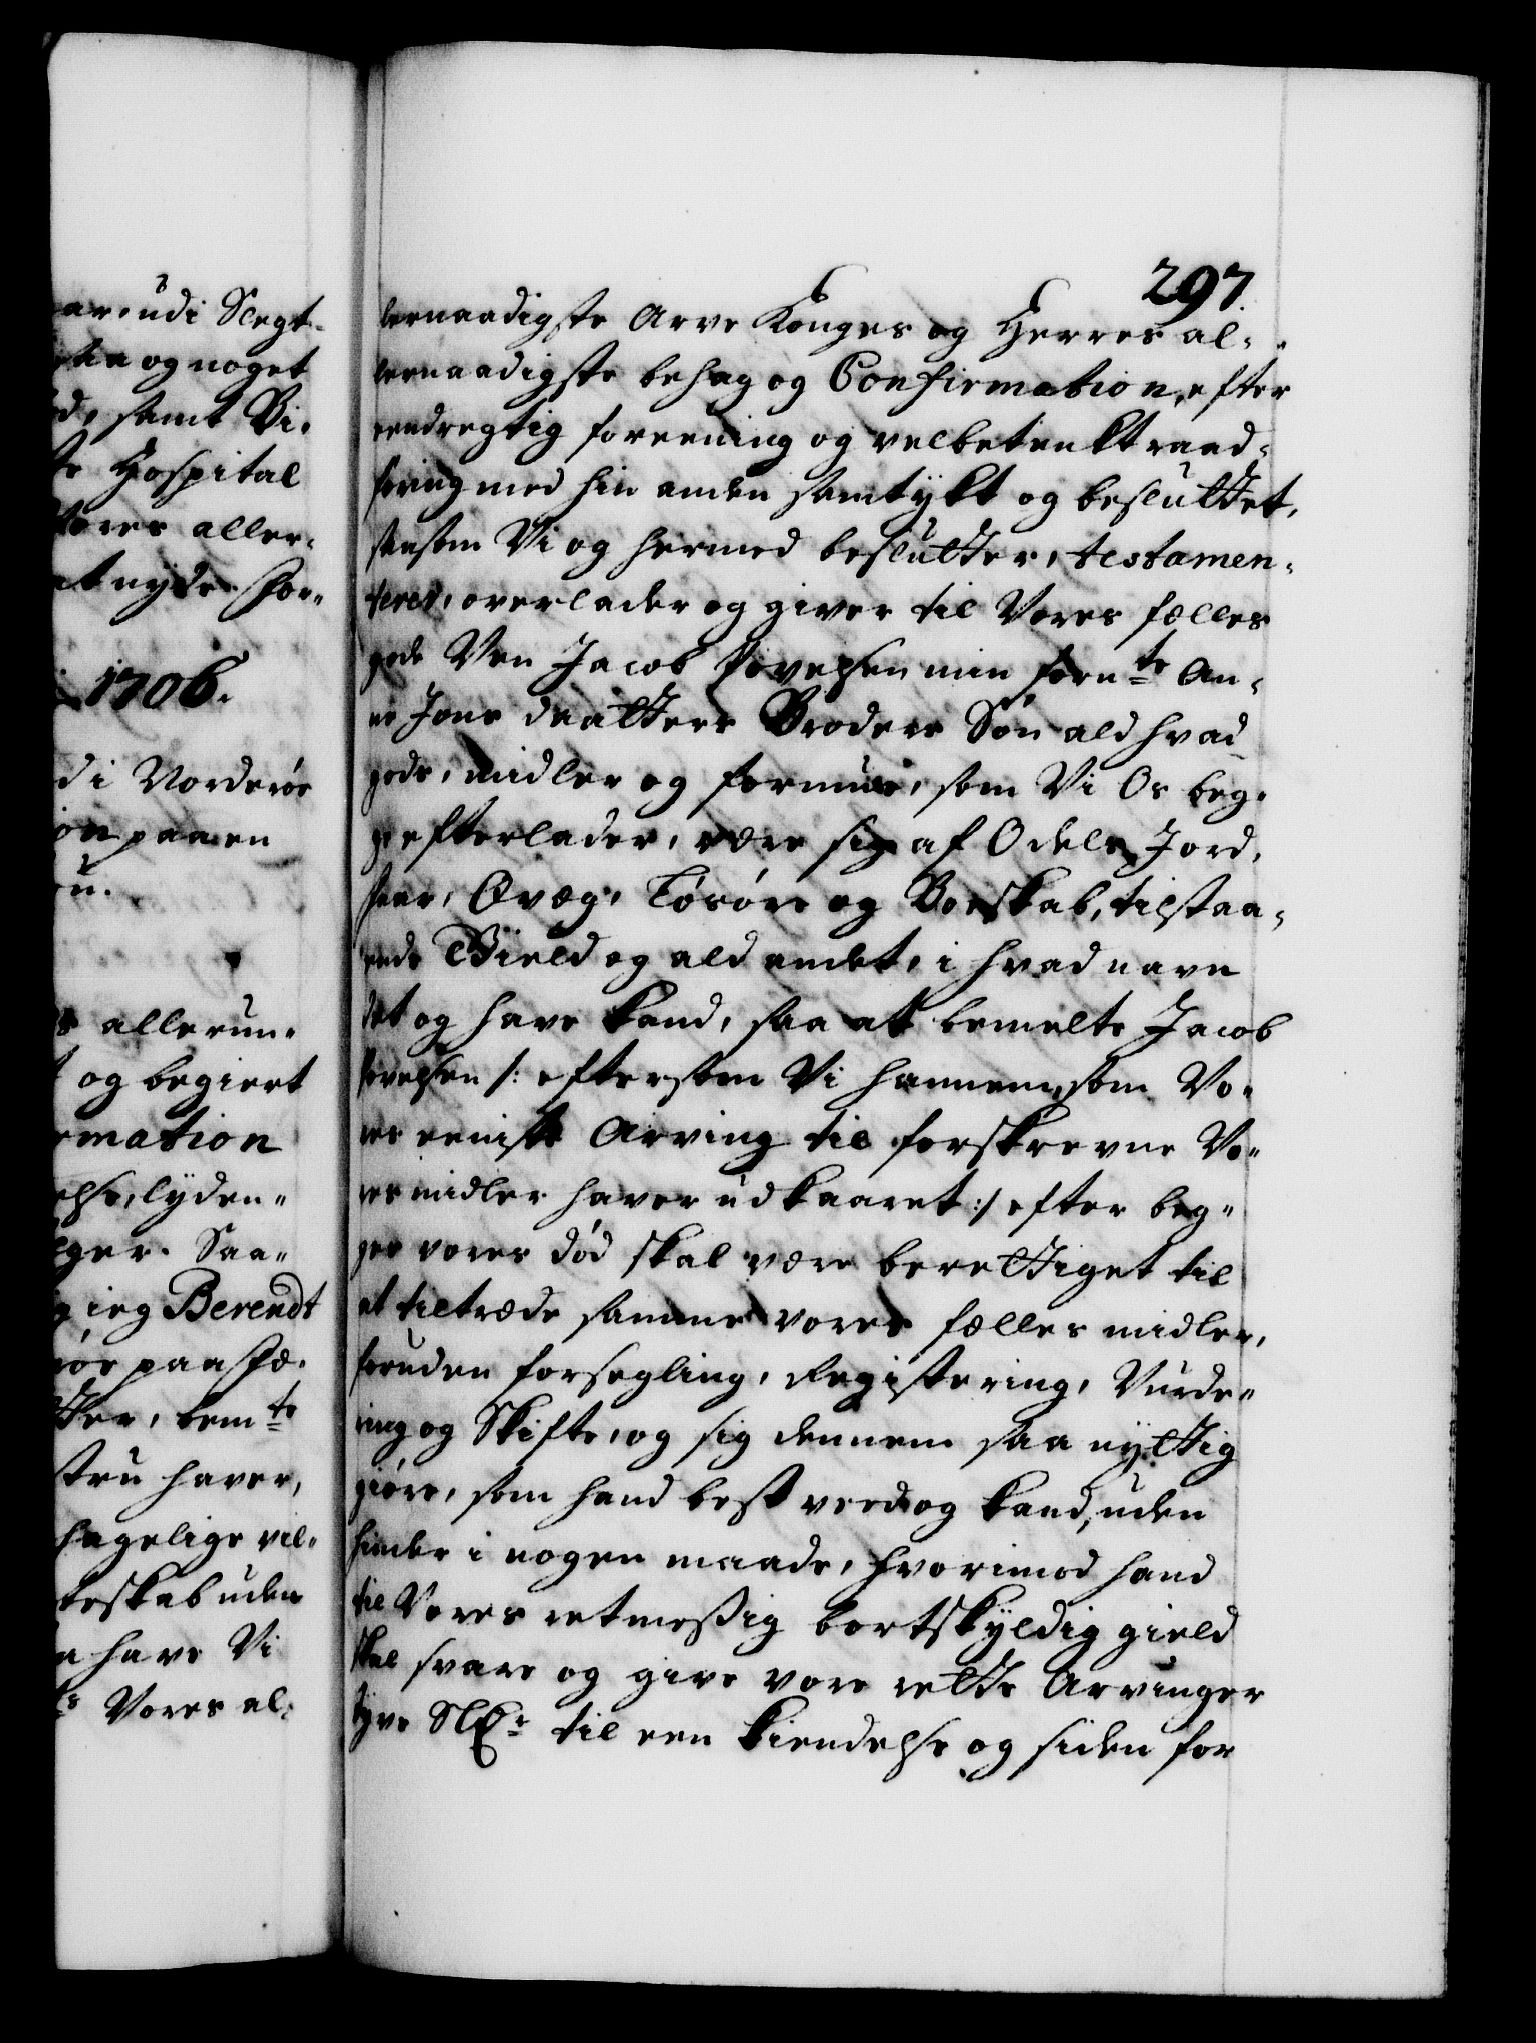 ar udi Slegt-
og noget
samt Vi-
Hospital
Vores aller-
at nyde. For-
1706.
di Norderøe
on paa en
allerun-
og begiert
rmation
else, lyden-
ger. Saa-
ieg Berendt
øe paa Fæ-
bemte
stru haver,
hagelige vil-
teskab uden
have Vi
Vores al-
297.
lernaadigste Arve Konges og Herres al-
lernaadigste behag og Confirmation, efter
eendregtig foreening og velbetenkt raad-
føring med hin anden samtykt og besluttet,
saasom Vi og hermed beslutter, testamen-
terer, overlader og giver til Vores fælles
gode Ven Jacob Povelsen min fornte An-
ne Jons daatters Broders Søn ald hvad
gods, midler og formue, som Vi Os beg-
ge efterlader, være sig af Odels Jord,
Faar, Qvæg, Løsøre og Boeskab, tilstaa-
ende Gield og ald andet, i hvad navn
det og have kand, saa at bemelte Jacob
Povelsen /: eftersom Vi hannem, som Vo-
res eniste Arving til forskrevne Vo-
res midler haver udkaaret :/ efter beg-
ges vores død skal være berettiget til
at tiltræde samme vores fælles midler,
foruden forsegling, Registering, Vurde-
ring og Skifte, og sig dennem saa nyttig
giøre, som hand best veed og kand, uden
hinder i nogen maade, hvorimod hand
til Vores retmessig bortskyldig gield
skal svare og give vore rette Arvinger
tyve Slr til een kiendelse og siden for